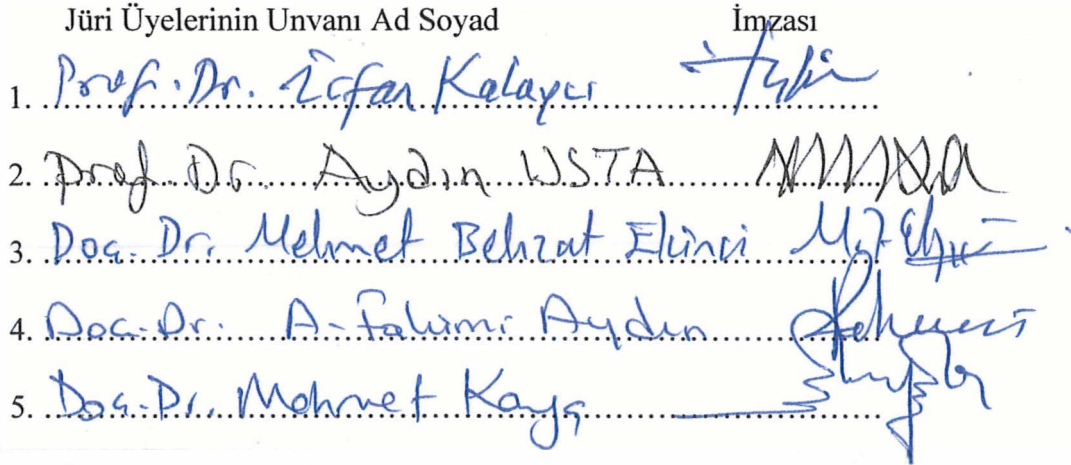 Jüri Üyelerinin Unvanı Ad Soyad İmzası
1. Prof. Dr. İrfan Kalaycı
2. Prof. Dr. Aydın USTA
3. Doç. Dr. Mehmet Behzat Ekinci
4. Doç. Dr. A. Fahimi Aydın
5. Doç. Dr. Mehmet Kaya